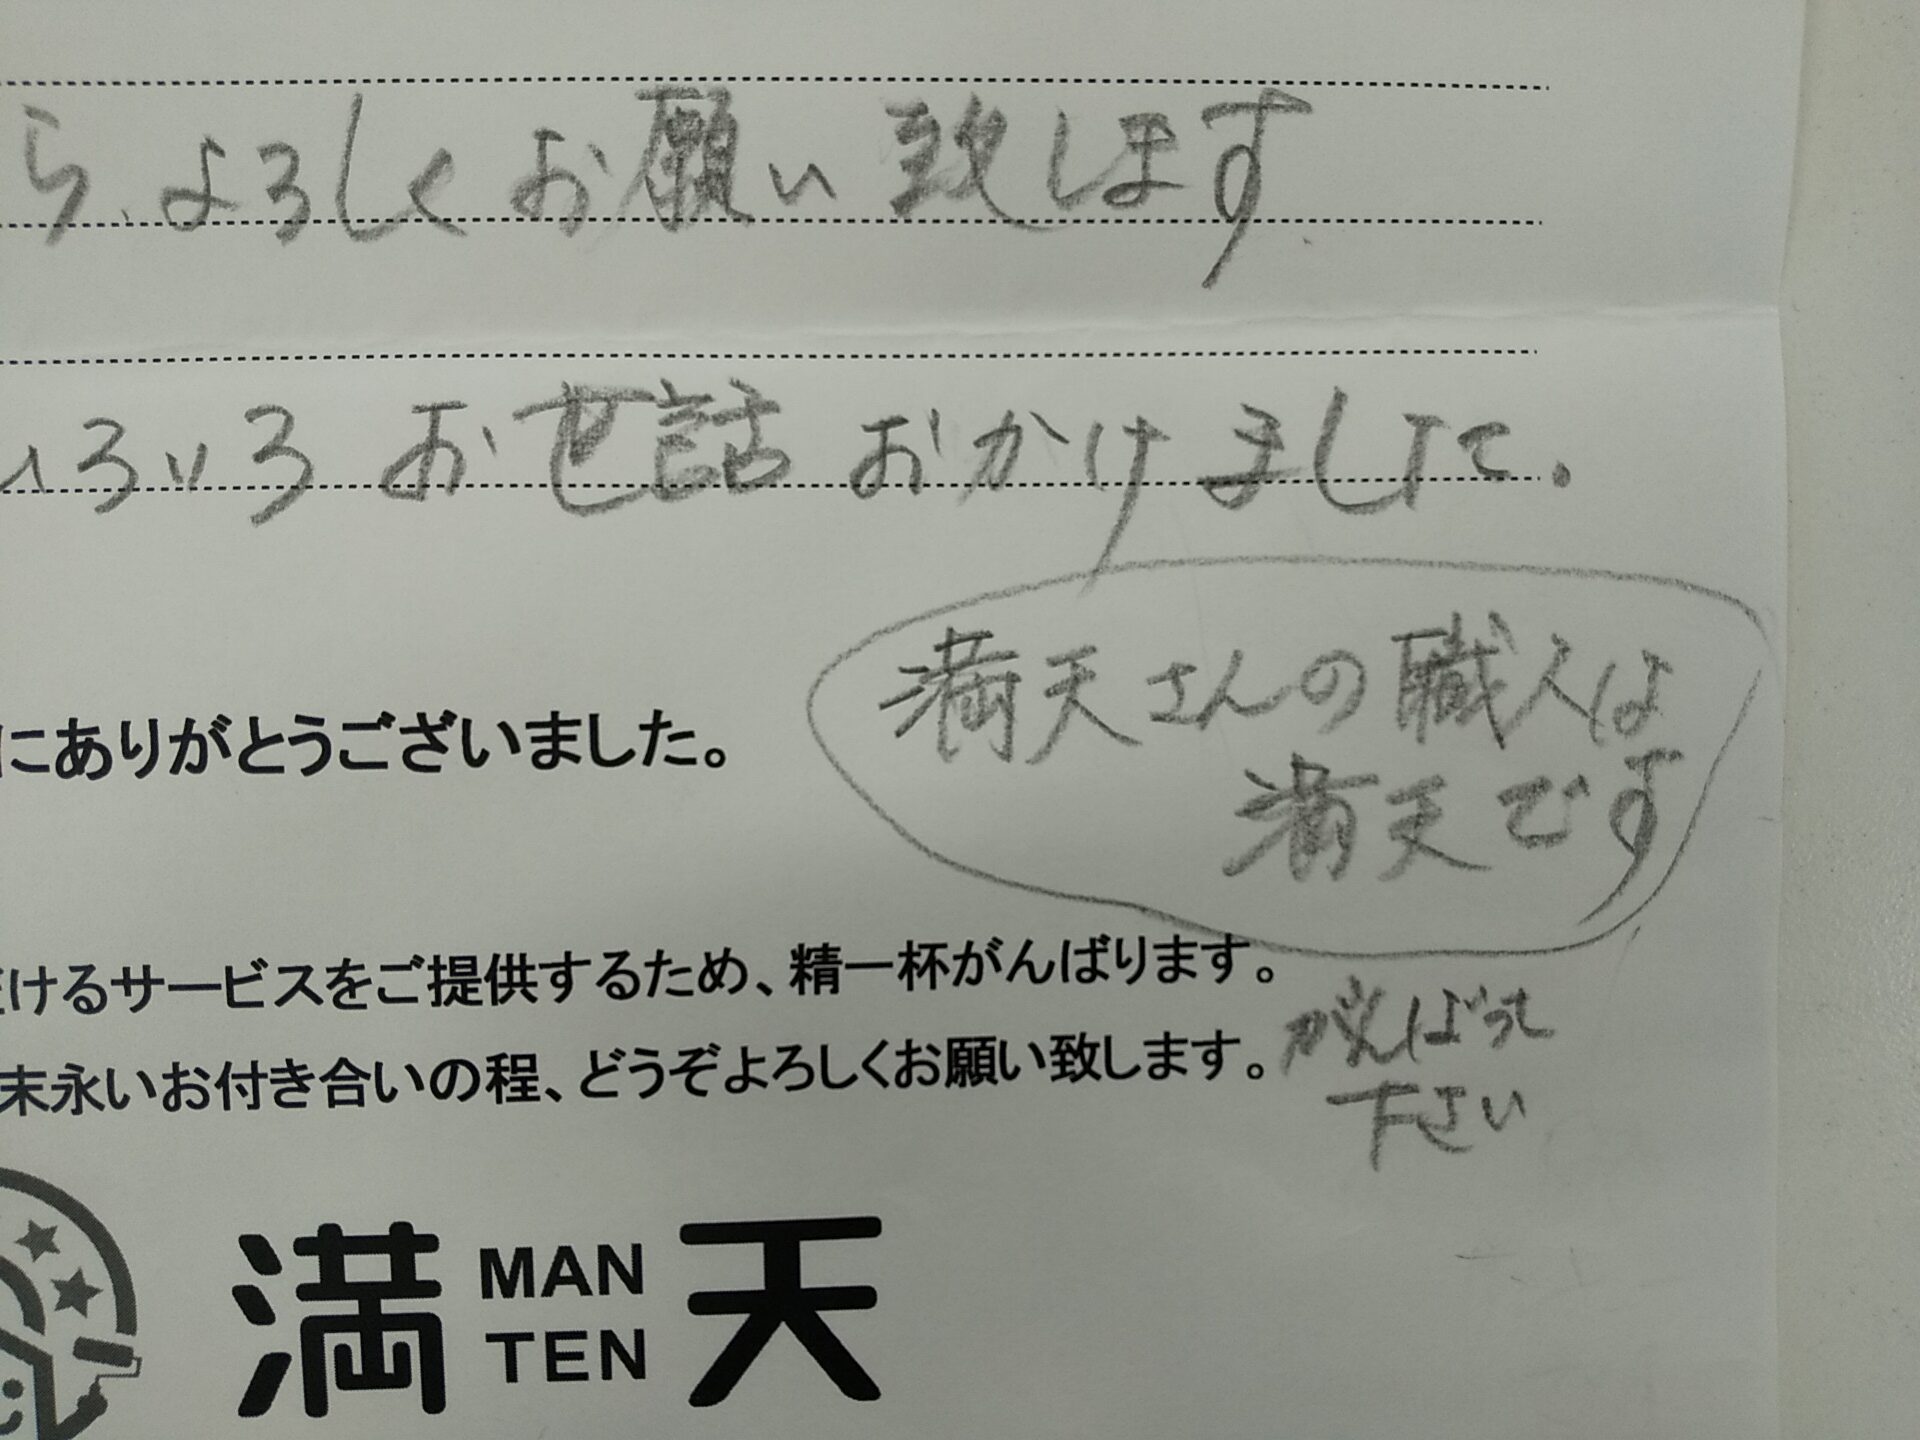 ら、よろしくお願い致します
いろいろお世話おかけまして.
満天さんの職人は
満天です
にありがとうございました。
けるサービスをご提供するため、精一杯がんばります。
末永いお付き合いの程、どうぞよろしくお願い致します。
がんばって
下さい
満天
MAN
TEN